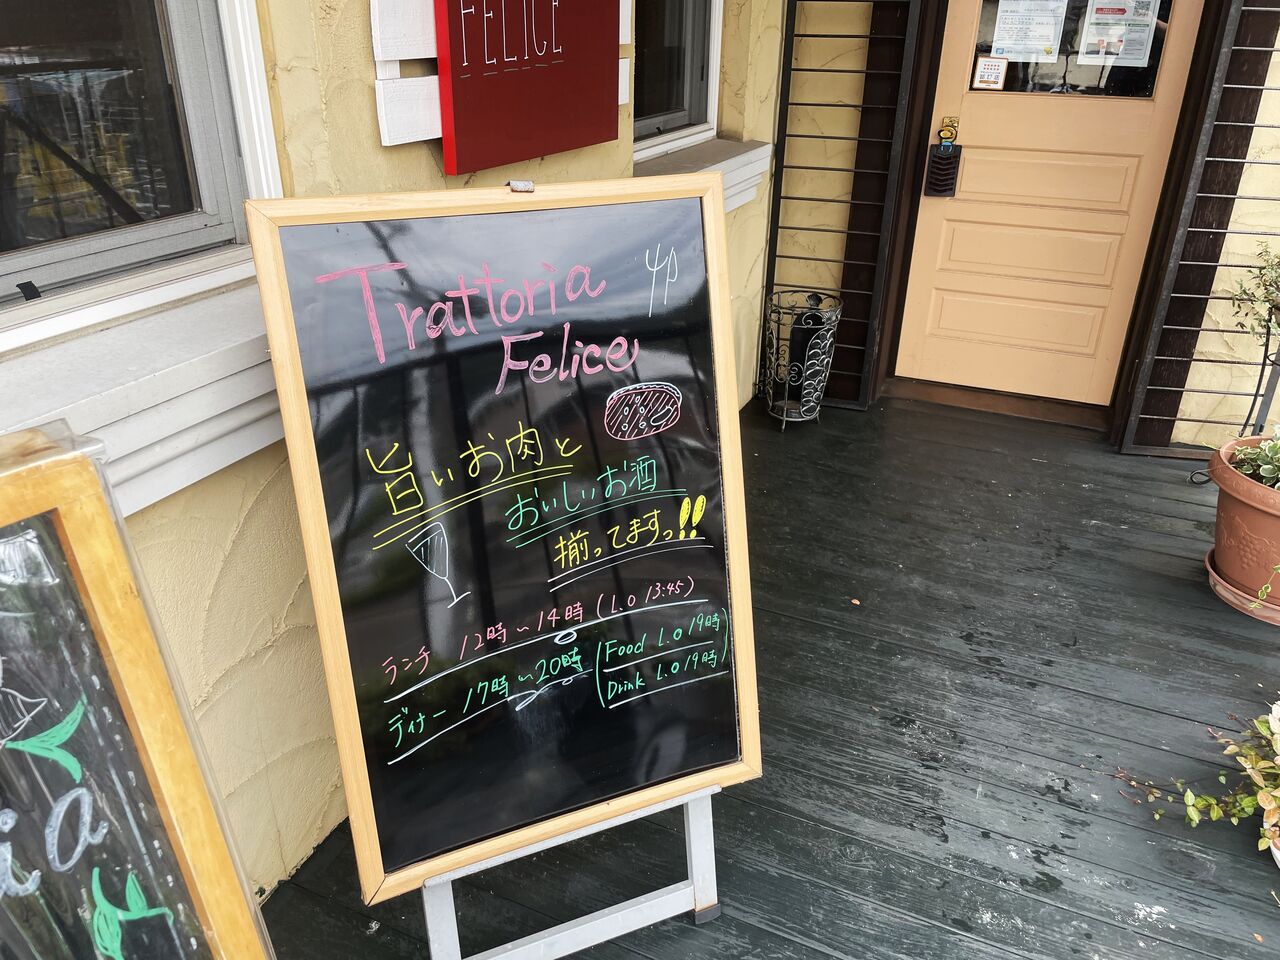 FELICE
Trattoria
Felice
旨いお肉と
おいしいお酒
揃ってますっ!!
ランチ 12時～14時 (L.O 13:45)
ディナー 17時～20時 (Food L.O 19時
Drink L.O 19時)
ia